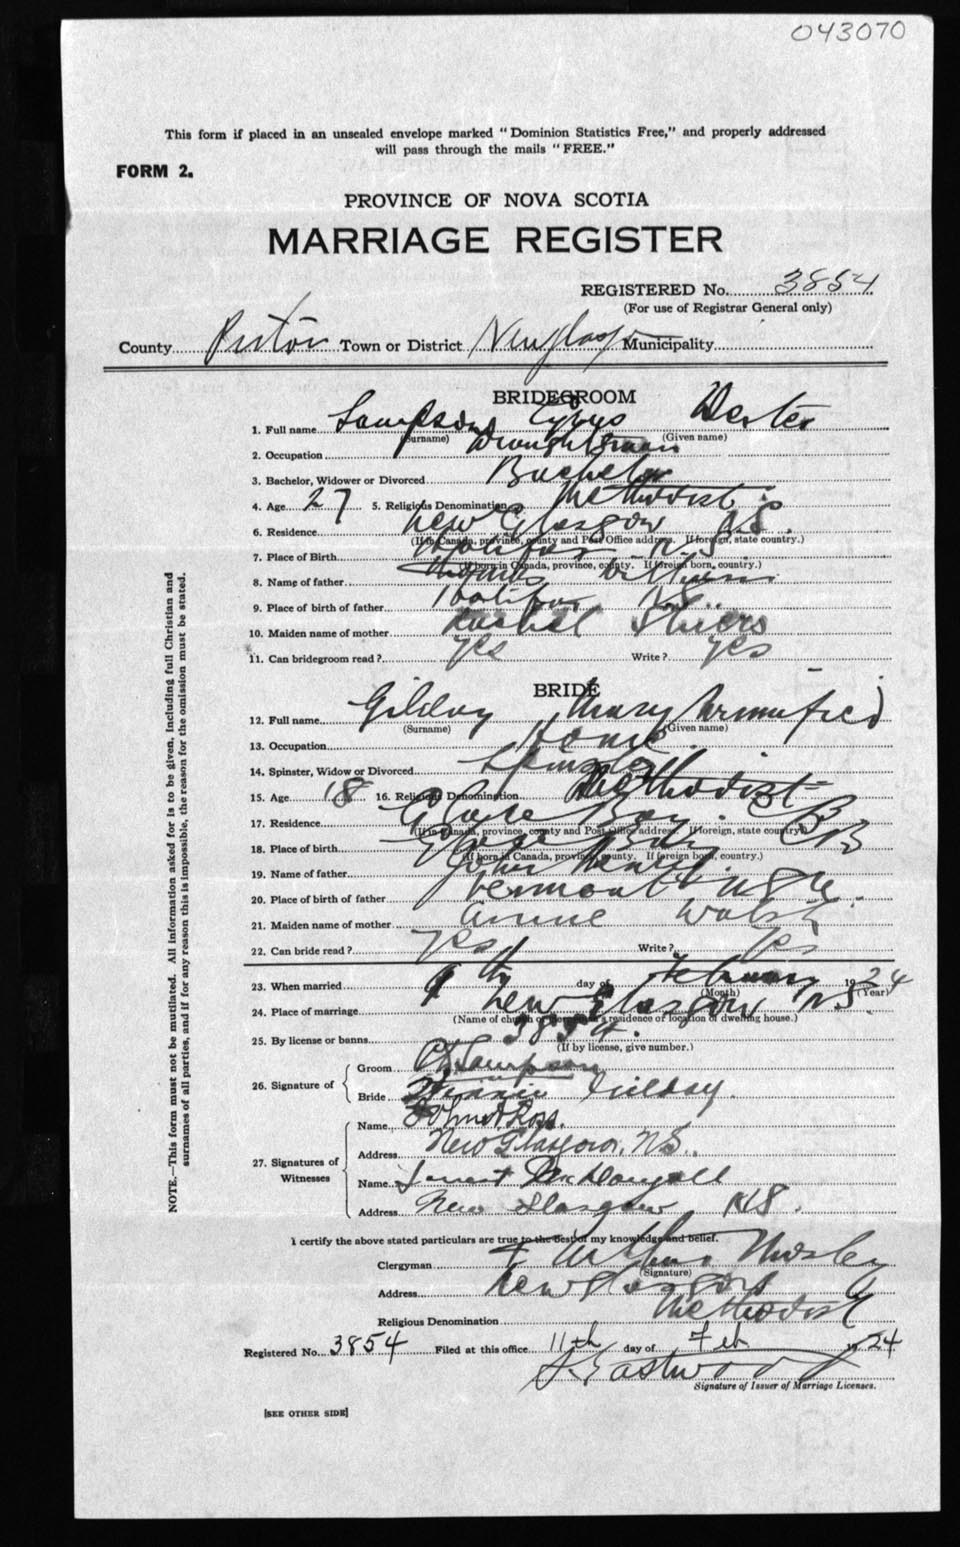 043070
This form if placed in an unsealed envelope marked "Dominion Statistics Free," and properly addressed
will pass through the mails "FREE."
FORM 2.
PROVINCE OF NOVA SCOTIA
MARRIAGE REGISTER
REGISTERED No. 3854
(For use of Registrar General only)
County Pictou Town or District New Glasgow Municipality
BRIDEGROOM
1. Full name Sampson Cyrus Dexter
(Surname) (Given name)
2. Occupation Draughtsman
3. Bachelor, Widower or Divorced Bachelor
4. Age 27 5. Religious Denomination Methodist
6. Residence New Glasgow N.S.
(If in Canada, province, county and Post Office address. If foreign, state country.)
7. Place of Birth Halifax N.S
(If born in Canada, province, county. If foreign born, country.)
8. Name of father Thomas William
9. Place of birth of father Halifax N.S.
10. Maiden name of mother Rachel
11. Can bridegroom read? yes Write? yes
BRIDE
12. Full name Gilday Mary
(Surname) (Given name)
13. Occupation Home
14. Spinster, Widow or Divorced Spinster
15. Age 18 16. Religious Denomination Methodist
17. Residence Glace Bay C B
(If in Canada, province, county and Post Office address. If foreign, state country.)
18. Place of birth Glace Bay C B
(If born in Canada, province, county. If foreign born, country.)
19. Name of father John
20. Place of birth of father Vermont
21. Maiden name of mother Annie Walsh
22. Can bride read? yes Write? yes
23. When married 9th day of February 1924
(Month) (Year)
24. Place of marriage New Glasgow NS
(Name of church or residence or location of dwelling house.)
25. By license or banns 3854.
(If by license, give number.)
26. Signature of Groom Sampson
Bride Gilday
27. Signatures of Witnesses
Name Ross
Address New Glasgow, N.S.
Name McDougall
Address New Glasgow N.S.
I certify the above stated particulars are true to the best of my knowledge and belief.
Clergyman Arthur Mosley
(Signature)
Address New Glasgow
Religious Denomination Methodist
Registered No. 3854 Filed at this office 11th day of Feb 1924
Eastwood
Signature of Issuer of Marriage Licenses.
[SEE OTHER SIDE]
NOTE.—This form must not be mutilated. All information asked for is to be given, including full Christian and
surnames of all parties, and if for any reason this is impossible, the reason for the omission must be stated.